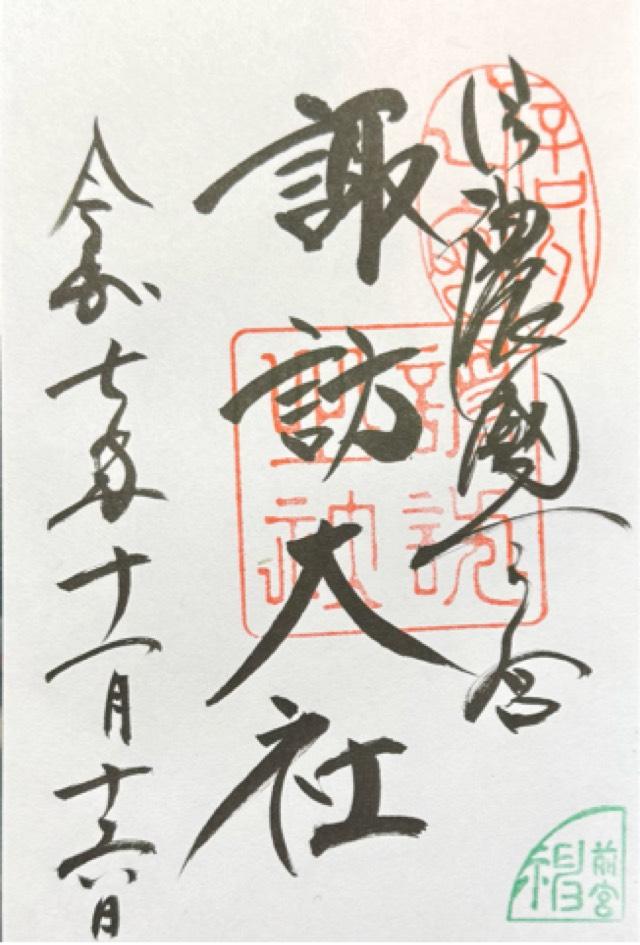 信濃國一之宮
諏訪大社
令和七年十一月十六日
前宮